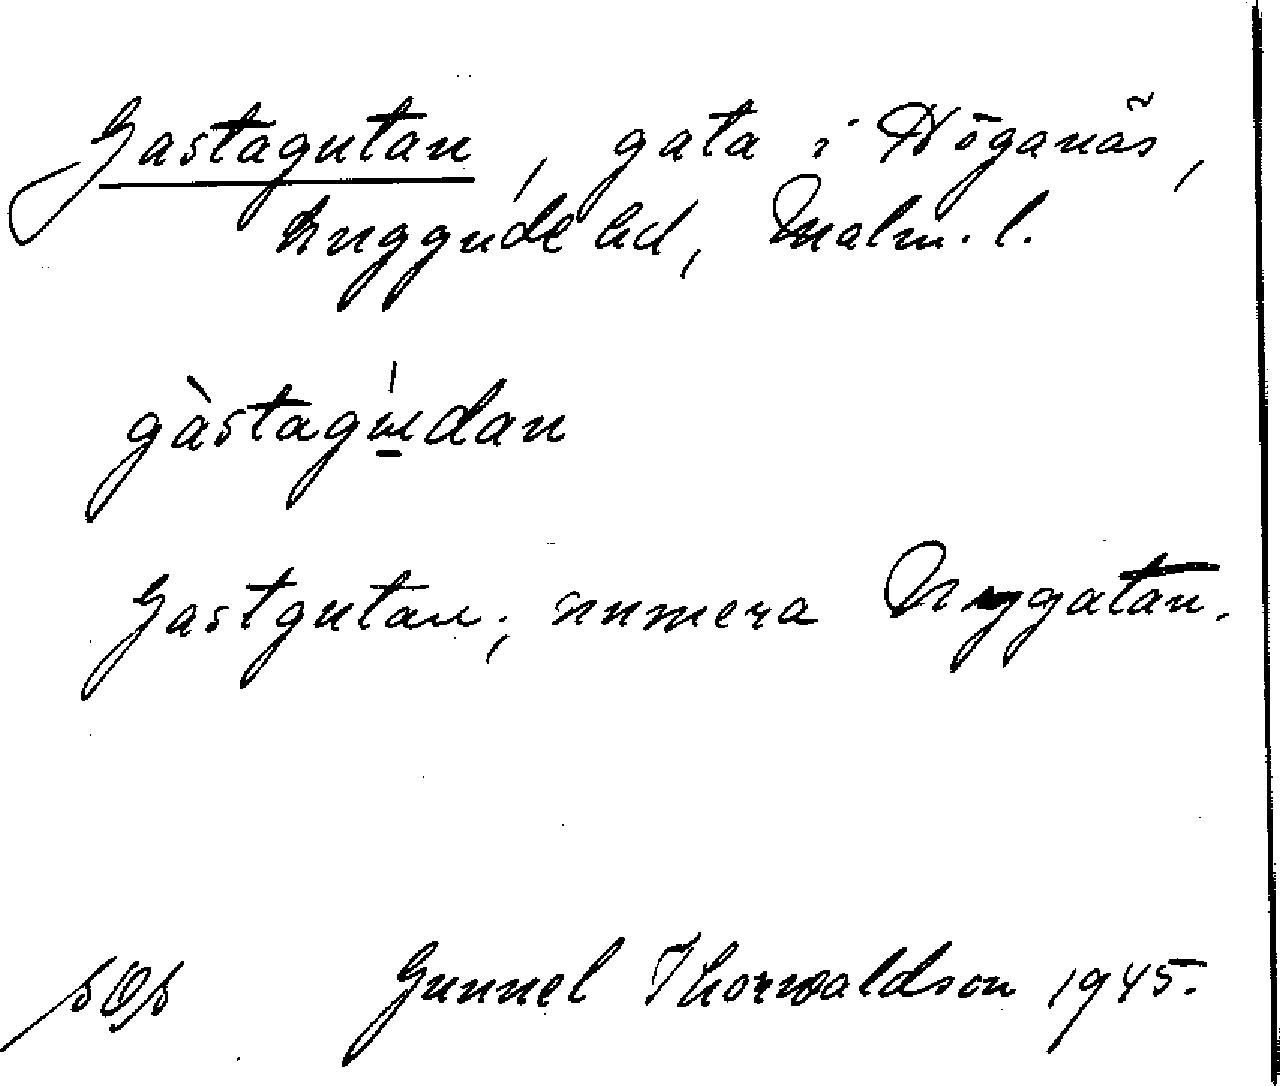 Gastagutan, gata i Höganäs,
Luggude hd, Malm. l.
gàstagú̱dan
Gastgutan; numera Nygatan.
Gunnel Thorwaldson 1945.